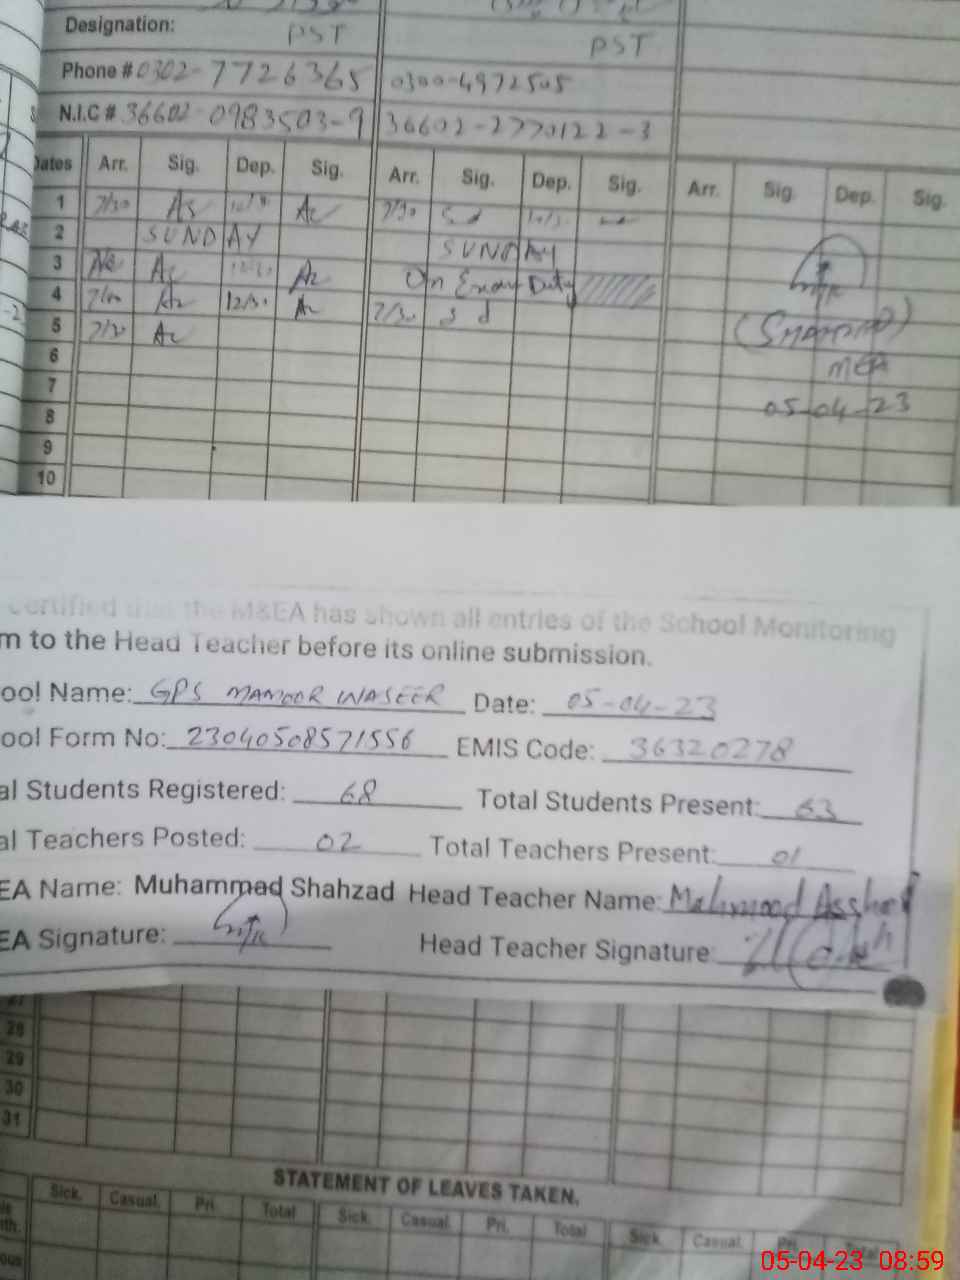 Designation: PST PST
Phone # 0302-7726365 0300-4972505
N.I.C # 36602-0983503-9 36602-2770122-3
Dates Arr. Sig. Dep. Sig. Arr. Sig. Dep. Sig. Arr. Sig. Dep. Sig.
1 7/30 7/30 Sd
2 SUNDAY SUNDAY
3 On Exam Duty
4 12/30 7/30 Sd
5 7/30
6
7
8
9
10
MEA
05-04-23
certified that the M&EA has shown all entries of the School Monitoring
m to the Head Teacher before its online submission.
ool Name: GPS MANOOR WASEER Date: 05-04-23
ool Form No: 23040508571556 EMIS Code: 36320278
al Students Registered: 68 Total Students Present: 63
al Teachers Posted: 02 Total Teachers Present: 01
EA Name: Muhammad Shahzad Head Teacher Name: Mahmood
EA Signature: Head Teacher Signature:
27
28
29
30
31
STATEMENT OF LEAVES TAKEN.
Sick. Casual. Pri. Total Sick. Casual. Pri. Total Sick. Casual. Pri. Total
05-04-23 08:59